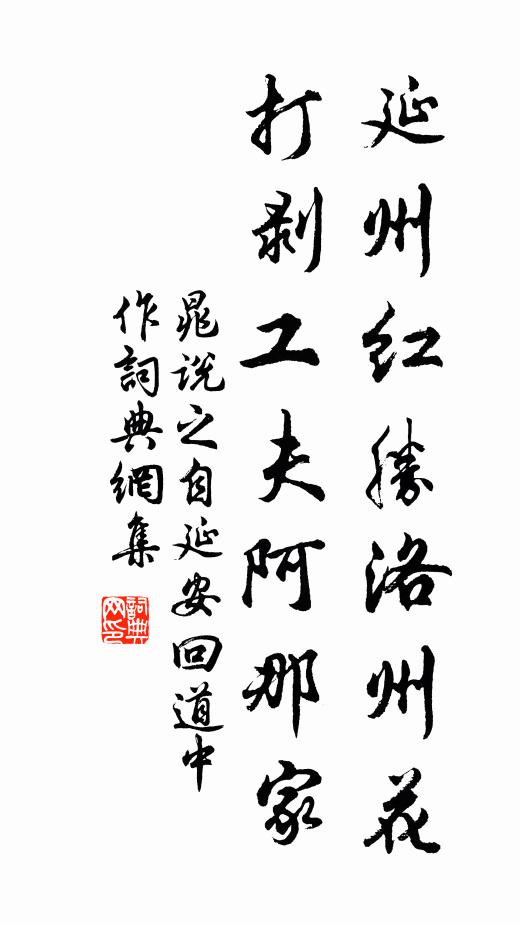 延州红勝洛州花
打剥工夫阿那家
晁说之自延安回道中
作詞典網集
詞典
网印